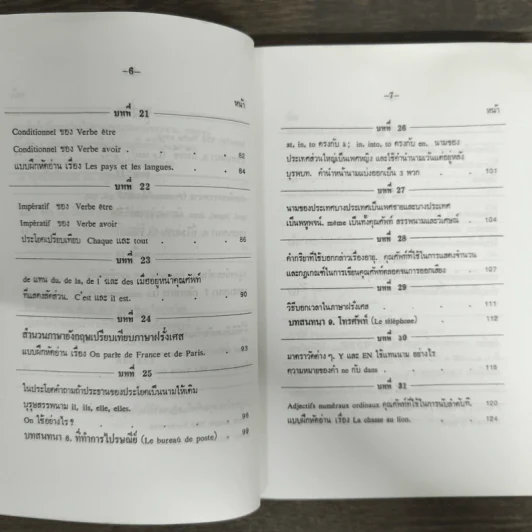 –6–
หน้า
บทที่ 21
Conditionnel ของ Verbe être
Conditionnel ของ Verbe avoir . 82
แบบฝึกหัดอ่าน เรื่อง Les pays et les langues. 84
บทที่ 22
Impératif ของ Verbe être
Impératif ของ Verbe avoir
ประโยคเปรียบเทียบ Chaque และ tout . 86
บทที่ 23
de แทน du, de la, de l' และ des เมื่ออยู่หน้าคุณศัพท์
ที่แสดงสัดส่วน. C'est และ il est. 90
บทที่ 24
สำนวนภาษาอังกฤษเปรียบเทียบภาษาฝรั่งเศส
แบบฝึกหัดอ่าน เรื่อง On parle de France et de Paris. 93
บทที่ 25
ในประโยคคำถามถ้าประธานของประโยคเป็นนามให้เติม
บุรุษสรรพนาม il, ils, elle, elles.
On ใช้อย่างไร ?
บทสนทนา ๑. ที่ทำการไปรษณีย์ (Le bureau de poste) . 99
–7–
หน้า
บทที่ 26
at, in, to ตรงกับ à ; in, into, to ตรงกับ en. นามของ
ประเทศส่วนใหญ่เป็นเพศหญิง และใช้คำนำนามเว้นแต่อยู่หลัง
บุรพบท. คำนำหน้านามแบ่งออกเป็น 3 พวก . 101
บทที่ 27
นามของประเทศบางประเทศเป็นเพศชายและบางประเทศ
เป็นพหูพจน์. même เป็นทั้งคุณศัพท์ สรรพนามและวิเศษณ์ . 104
บทที่ 28
คำกริยาที่ใช้บอกกล่าวเรื่องอายุ. คุณศัพท์ที่ใช้ในการแสดงจำนวน
และกฎเกณฑ์ในการเขียนคุณศัพท์ตลอดจนการออกเสียง . 107
บทที่ 29
วิธีบอกเวลาในภาษาฝรั่งเศส . 111
บทสนทนา ๑. โทรศัพท์ (Le téléphone) . 112
บทที่ 30
มาตราวัดต่าง ๆ. Y และ EN ใช้แทนนาม อย่างไร
ความหมายของคำ ne กับ dans . 116
บทที่ 31
Adjectifs numéraux ordinaux คุณศัพท์ที่ใช้ในการนับลำดับที่. 120
แบบฝึกหัดอ่าน เรื่อง La chasse au lion. 124